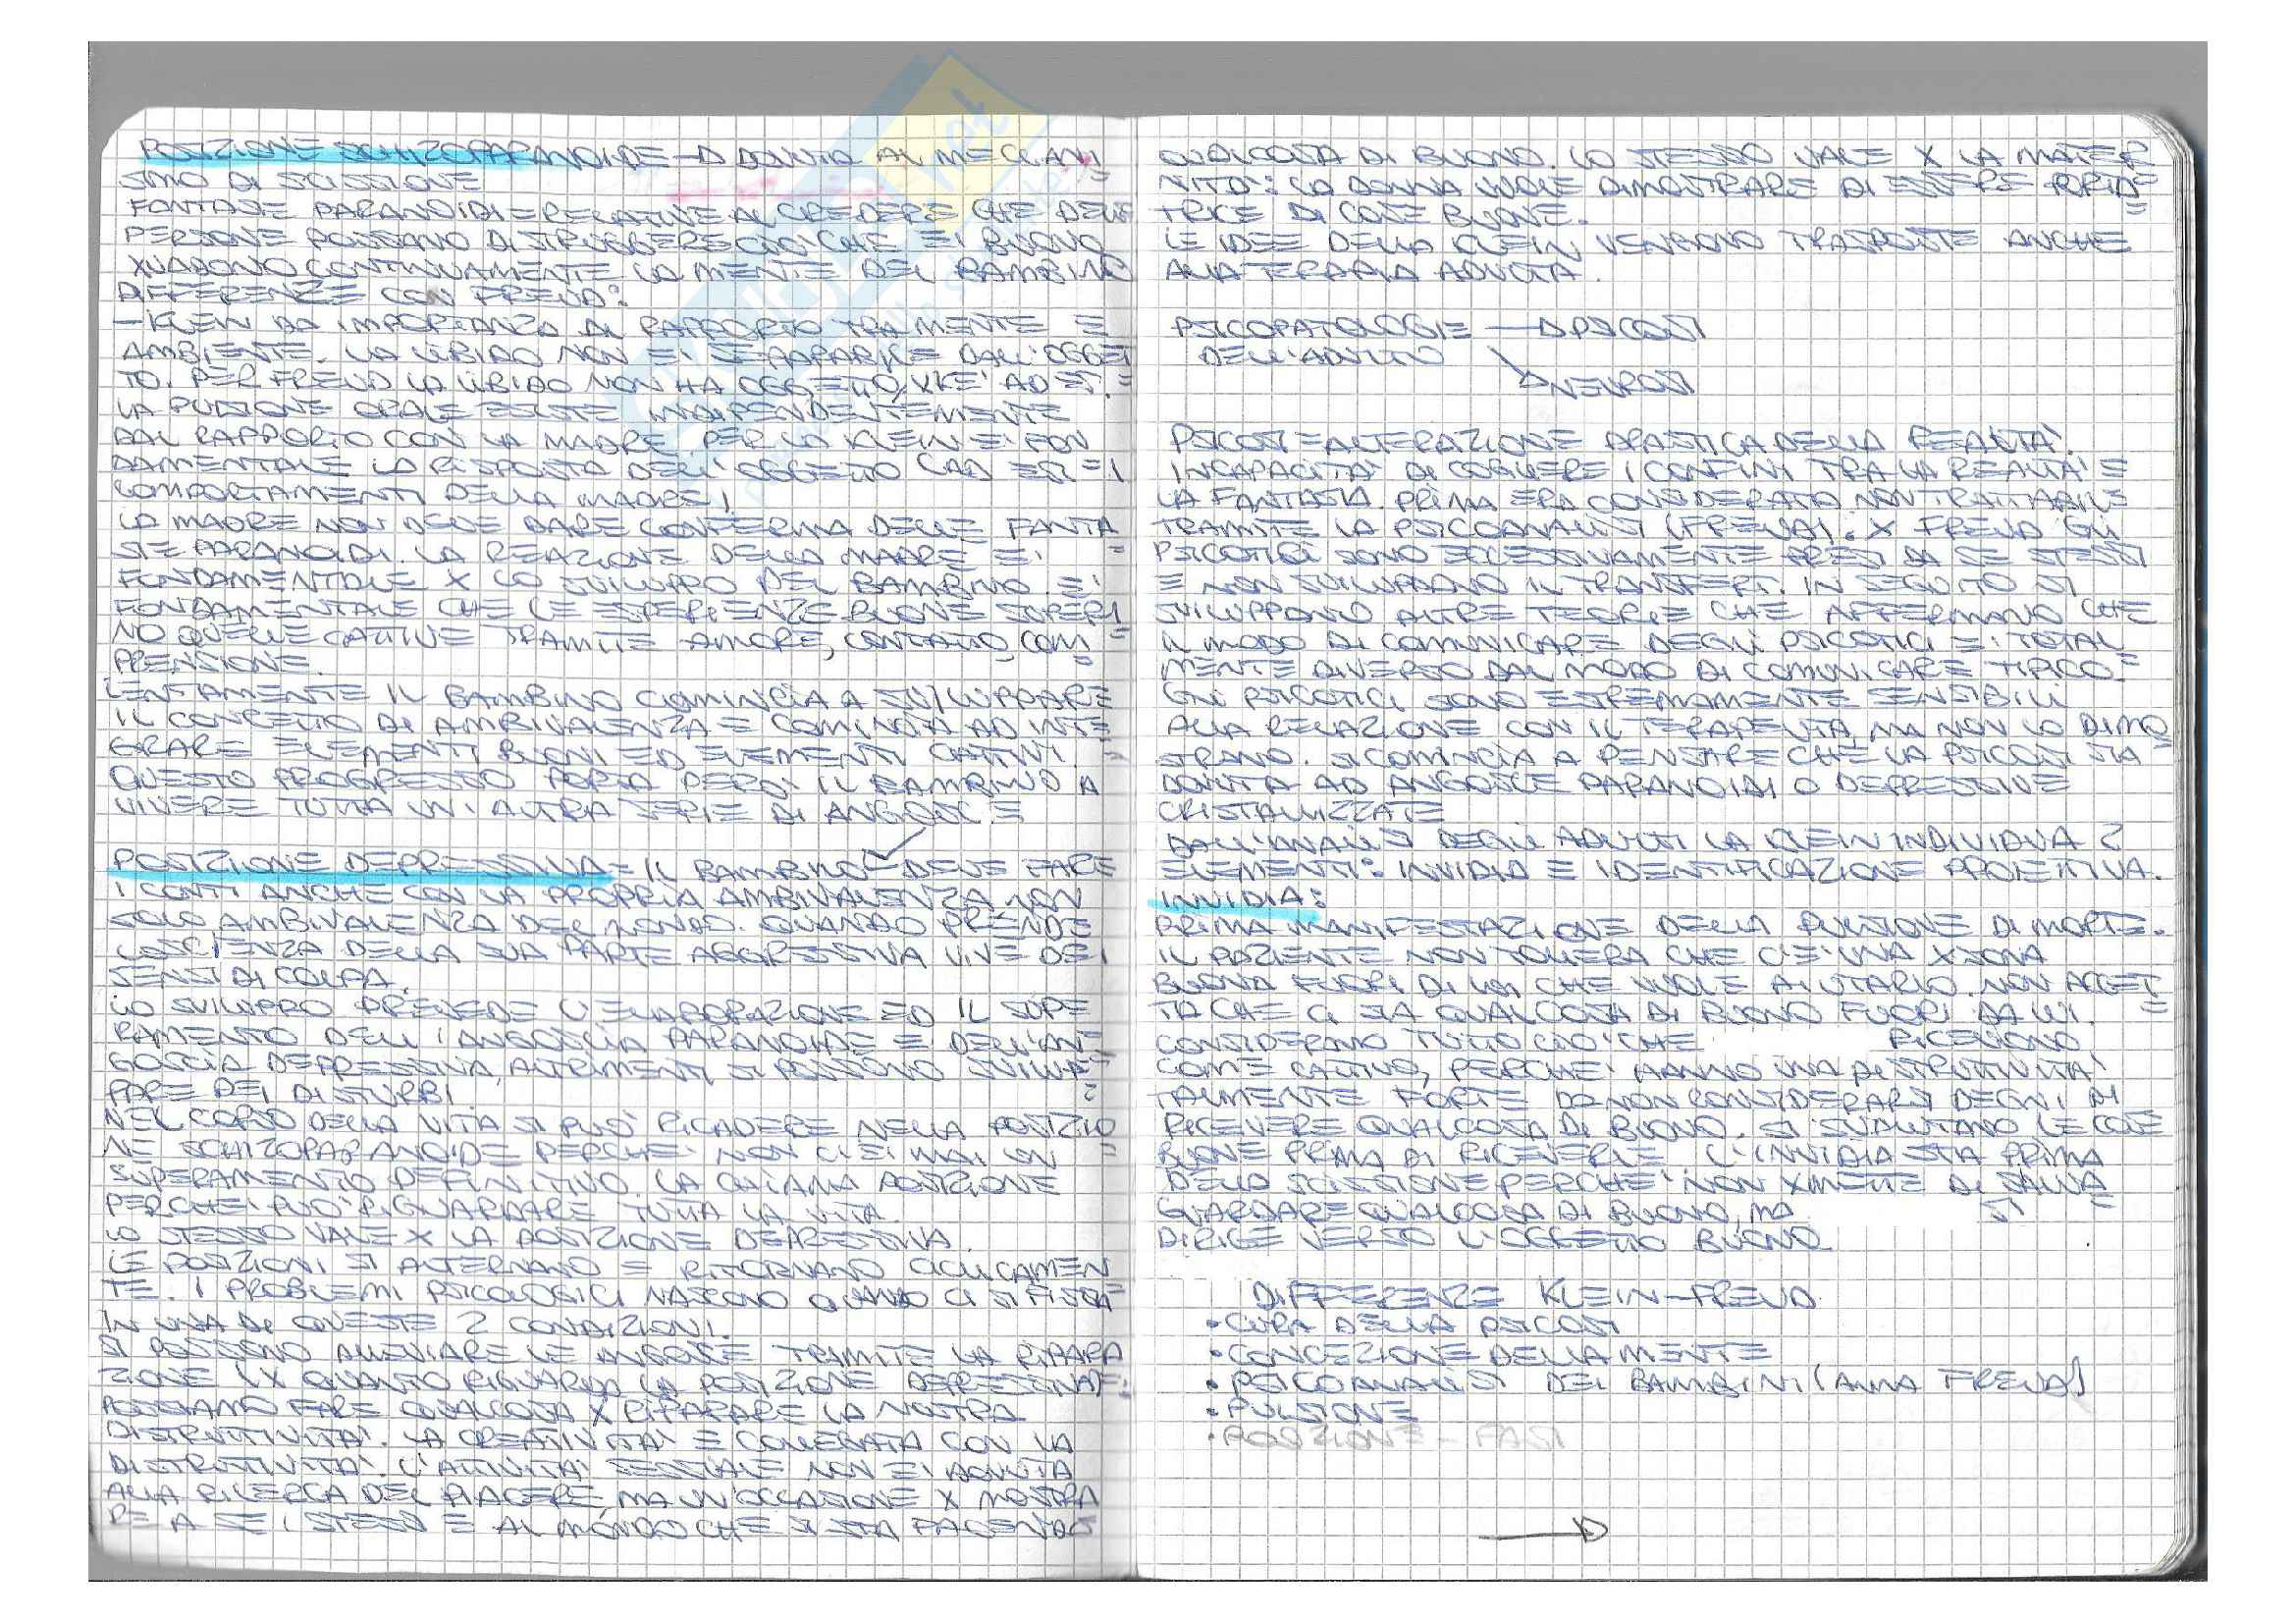 POSIZIONE SCHIZOPARANOIDE → DOVUTO AL MECCANI=
SMO DI SCISSIONE
FANTASIE PARANOIDI = RELATIVE AL CREDERE CHE DELLE
PERSONE POSSANO DISTRUGGERE CIÒ CHE E' BUONO
XVADONO CONTINUAMENTE LA MENTE DEL BAMBINO
DIFFERENZE CON FREUD:
- KLEIN DA IMPORTANZA AL RAPPORTO TRA MENTE E
AMBIENTE. LA LIBIDO NON E' SEPARABILE DALL'OGGET
TO. PER FREUD LA LIBIDO NON HA OGGETTO, XKE' AD ES. =
LA PULSIONE ORALE ESISTE INDIPENDENTEMENTE
DAL RAPPORTO CON LA MADRE. PER LA KLEIN E' FON
DAMENTALE LA RISPOSTA DELL'OGGETTO (AD ES. = I
COMPORTAMENTI DELLA MADRE)
LA MADRE NON DEVE DARE CONFERMA DELLE FANTA
SIE PARANOIDI. LA REAZIONE DELLA MADRE E' =
FONDAMENTALE X LO SVILUPPO DEL BAMBINO. E'
FONDAMENTALE CHE LE ESPERIENZE BUONE SUPERI
NO QUELLE CATTIVE TRAMITE AMORE, CONTATTO, COM =
PRENSIONE.
LENTAMENTE IL BAMBINO COMINCIA A SVILUPPARE
IL CONCETTO DI AMBIVALENZA E COMINCIA AD INTE
GRARE ELEMENTI BUONI ED ELEMENTI CATTIVI. =
QUESTO PROGRESSO PORTA PERO' IL BAMBINO A
VIVERE TUTTA UN'ALTRA SERIE DI ANGOSCE
POSIZIONE DEPRESSIVA = IL BAMBINO DEVE FARE
I CONTI ANCHE CON LA PROPRIA AMBIVALENZA, NON
SOLO AMBIVALENZA DEL MONDO. QUANDO PRENDE
COSCIENZA DELLA SUA PARTE AGGRESSIVA VIVE DEI
SENSI DI COLPA.
LO SVILUPPO PREVEDE L'ELABORAZIONE ED IL SUPE
RAMENTO DELL'ANGOSCIA PARANOIDE E DELL'AN =
GOSCIA DEPRESSIVA, ALTRIMENTI SI POSSONO SVILUP=
PARE DEI DISTURBI
NEL CORSO DELLA VITA SI PUO' RICADERE NELLA POSIZIO
NE SCHIZOPARANOIDE PERCHE' NON CI E' MAI UN =
SUPERAMENTO DEFINITIVO. LA CHIAMA POSIZIONE
PERCHE' PUO' RIGUARDARE TUTTA LA VITA.
LO STESSO VALE X LA POSIZIONE DEPRESSIVA.
LE POSIZIONI SI ALTERNANO E RITORNANO CICLICAMEN
TE. I PROBLEMI PSICOLOGICI NASCONO QUANDO CI SI FISSA =
IN UNA DI QUESTE 2 CONDIZIONI.
SI POSSONO ALLEVIARE LE ANGOSCE TRAMITE LA RIPARA
ZIONE (X QUANTO RIGUARDA LA POSIZIONE DEPRESSIVA): =
POSSIAMO FARE QUALCOSA X RIPARARE LA NOSTRA
DISTRUTTIVITA'. LA CREATIVITA' E' COLLEGATA CON LA
DISTRUTTIVITA'. L'ATTIVITA' SESSUALE NON E' DOVUTA
ALLA RICERCA DEL PIACERE, MA UN'OCCASIONE X MOSTRA
RE A SE' STESSI E AL MONDO CHE SI STA FACENDO
QUALCOSA DI BUONO. LO STESSO VALE X LA MATER
NITA': LA DONNA VUOLE DIMOSTRARE DI ESSERE PORTA=
TRICE DI COSE BUONE. =
LE IDEE DELLA KLEIN VENGONO TRASPOSTE ANCHE
ALLA TERAPIA ADULTA.
PSICOPATOLOGIE → PSICOSI
DELL'ADULTO
→ NEVROSI
PSICOSI = ALTERAZIONE DRASTICA DELLA REALTA'.
INCAPACITA' DI COGLIERE I CONFINI TRA LA REALTA' E
LA FANTASIA. PRIMA ERA CONSIDERATO NON TRATTABILE
TRAMITE LA PSICOANALISI (FREUD). X FREUD GLI
PSICOTICI SONO ECCESSIVAMENTE PRESI DA SE STESSI
E NON SVILUPPANO IL TRANSFERT. IN SEGUITO SI
SVILUPPANO ALTRE TEORIE CHE AFFERMANO CHE
IL MODO DI COMUNICARE DEGLI PSICOTICI E' TOTAL
MENTE DIVERSO DAL MODO DI COMUNICARE TIPICO. =
GLI PSICOTICI SONO ESTREMAMENTE SENSIBILI
ALLA RELAZIONE CON IL TERAPEUTA, MA NON LO DIMO
STRANO. SI COMINCIA A PENSARE CHE LA PSICOSI SIA =
DOVUTA AD ANGOSCE PARANOIDI O DEPRESSIVE
CRISTALLIZZATE
DALL'ANALISI DEGLI ADULTI LA KLEIN INDIVIDUA 2
ELEMENTI: INVIDIA E IDENTIFICAZIONE PROIETTIVA.
INVIDIA:
PRIMA MANIFESTAZIONE DELLA PULSIONE DI MORTE.
IL PAZIENTE NON TOLLERA CHE C'E' UNA XSONA
BUONA FUORI DI LUI CHE VUOLE AIUTARLO. NON ACCET
TA CHE CI SIA QUALCOSA DI BUONO FUORI DA LUI. =
CONSIDERANO TUTTO CIO' CHE RICEVONO
COME CATTIVO, PERCHE' HANNO UNA DISTRUTTIVITA'
TALMENTE FORTE DA NON CONSIDERARSI DEGNI DI
RICEVERE QUALCOSA DI BUONO. SI SVALUTANO LE COSE
BUONE PRIMA DI RICEVERLE. L'INVIDIA STA PRIMA
DELLA SCISSIONE PERCHE' NON XMETTE DI SALVA
GUARDARE QUALCOSA DI BUONO, MA SI =
DIRIGE VERSO L'OGGETTO BUONO.
DIFFERENZE KLEIN-FREUD
• CURA DELLA PSICOSI
• CONCEZIONE DELLA MENTE
• PSICOANALISI DEI BAMBINI (ANNA FREUD)
• PULSIONE
• POSIZIONE - FASI